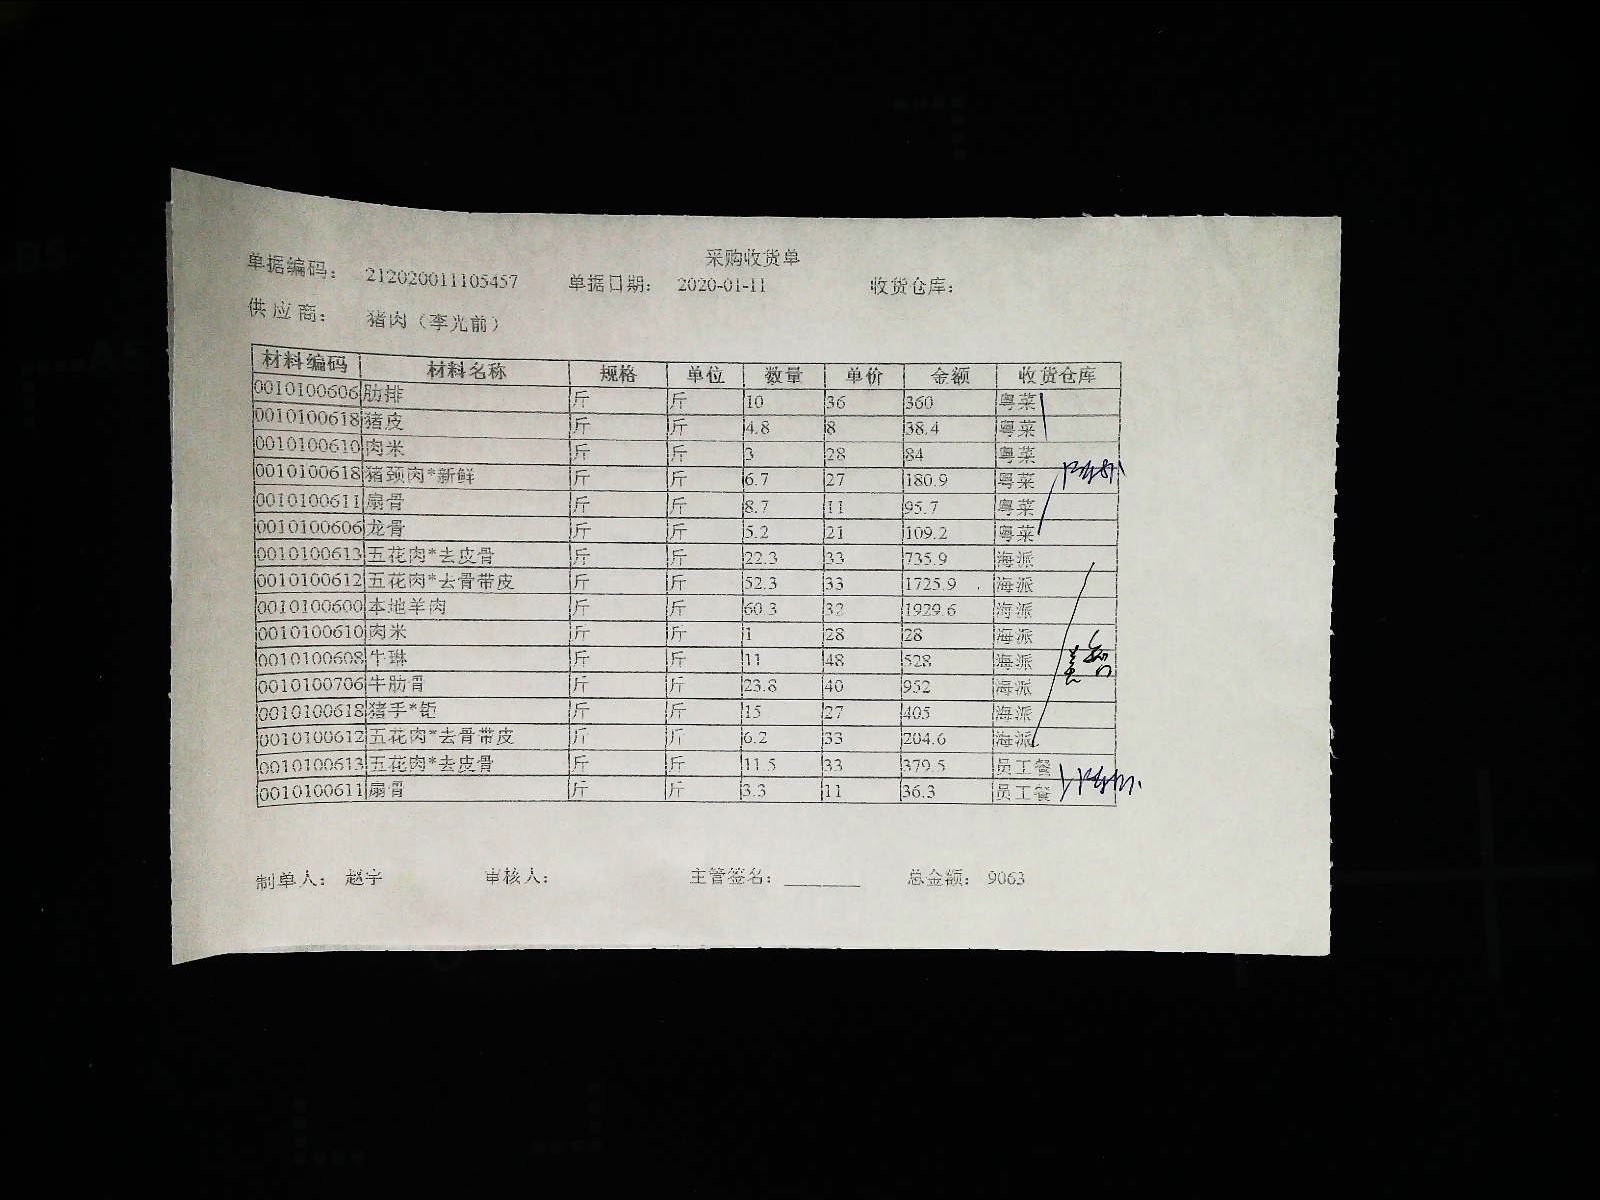 采购收货单
单据编码： 212020011105457 单据日期： 2020-01-11 收货仓库：
供应商： 猪肉（李光前）
材料编码 材料名称 规格 单位 数量 单价 金额 收货仓库
0010100606 肋排 斤 斤 10 36 360 粤菜
0010100618 猪皮 斤 斤 4.8 8 38.4 粤菜
0010100610 肉米 斤 斤 3 28 84 粤菜
0010100618 猪颈肉*新鲜 斤 斤 6.7 27 180.9 粤菜
0010100611 扇骨 斤 斤 8.7 11 95.7 粤菜
0010100606 龙骨 斤 斤 5.2 21 109.2 粤菜
0010100613 五花肉*去皮骨 斤 斤 22.3 33 735.9 海派
0010100612 五花肉*去骨带皮 斤 斤 52.3 33 1725.9 海派
0010100600 本地羊肉 斤 斤 60.3 32 1929.6 海派
0010100610 肉米 斤 斤 1 28 28 海派
0010100608 牛𬊈 斤 斤 11 48 528 海派
0010100706 牛肋骨 斤 斤 23.8 40 952 海派
0010100618 猪手* 斤 斤 15 27 405 海派
0010100612 五花肉*去骨带皮 斤 斤 6.2 33 204.6 海派
0010100613 五花肉*去皮骨 斤 斤 11.5 33 379.5 员工餐
0010100611 扇骨 斤 斤 3.3 11 36.3 员工餐
制单人： 赵宇 审核人： 主管签名： 总金额： 9063